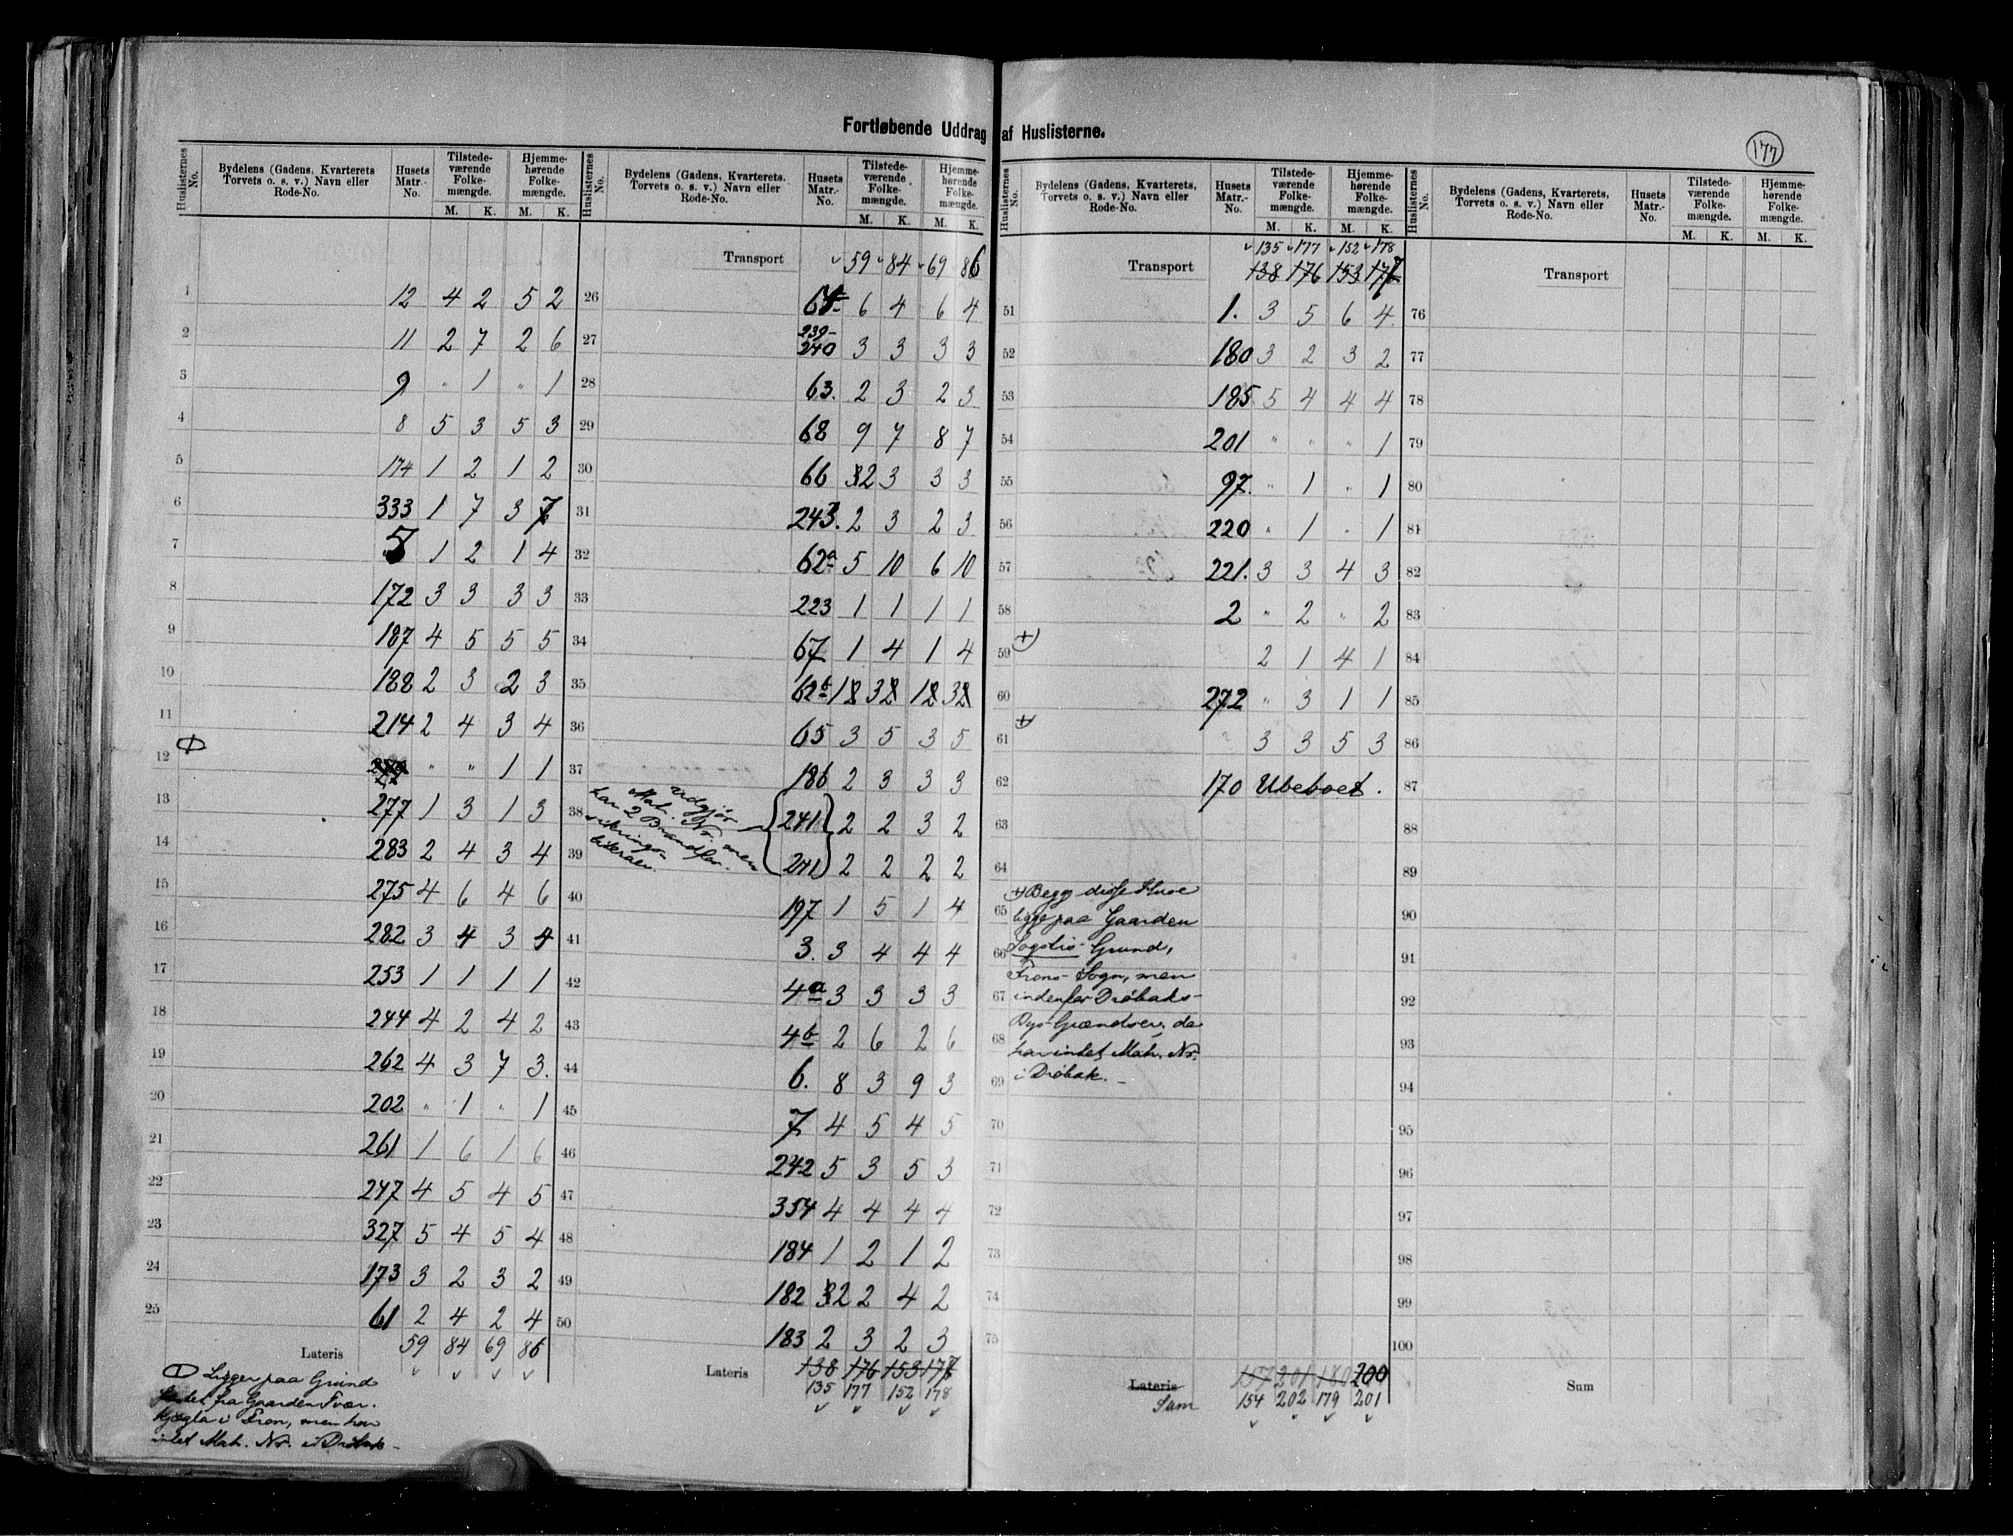 Fortløbende Uddrag af Huslisterne.
177
Huslisternes No. | Bydelens (Gadens, Kvarterets Torvets o. s. v.) Navn eller Rode-No. | Husets Matr.-No. | Tilstede-værende Folke-mængde. M. K. | Hjemme-hørende Folke-mængde. M. K.
1 12 4 2 5 2
2 11 2 7 2 6
3 9 " 1 " 1
4 8 5 3 5 3
5 174 1 2 1 2
6 333 1 7 3 7
7 5 1 2 1 4
8 172 3 3 3 3
9 187 4 5 5 5
10 188 2 3 2 3
11 214 2 4 3 4
12 " " 1 1
13 277 1 3 1 3
14 283 2 4 3 4
15 275 4 6 4 6
16 282 3 4 3 4
17 253 1 1 1 1
18 244 4 2 4 2
19 262 4 3 7 3.
20 202 " 1 " 1
21 261 1 6 1 6
22 247 4 5 4 5
23 327 5 4 5 4
24 173 3 2 3 2
25 61 2 4 2 4
Lateris 59 84 69 86
Ligger paa Grund
fra Gaarden
i Fron, men har
intet Matr. No. i Drøbak
Huslisternes No. | Bydelens (Gadens, Kvarterets, Torvets o. s. v.) Navn eller Rode-No. | Husets Matr.-No. | Tilstede-værende Folke-mængde. M. K. | Hjemme-hørende Folke-mængde. M. K.
Transport 59 84 69 86
26 64 6 4 6 4
27 239-240 3 3 3 3
28 63. 2 3 2 3
29 68 9 7 8 7
30 66 2 3 3 3
31 243. 2 3 2 3
32 62a 5 10 6 10
33 223 1 1 1 1
34 67 1 4 1 4
35 62b
36 65 3 5 3 5
37 186 2 3 3 3
38 241 2 2 3 2
39 241 2 2 2 2
Udgjør
Matr. No. men
har 2 Brandfor-
siknings-
literaer.
40 197 1 5 1 4
41 3. 3 4 4 4
42 4a 3 3 3 3
43 4b 2 6 2 6
44 6. 8 3 9 3
45 7 4 5 4 5
46 242 5 3 5 3
47 354 4 4 4 4
48 184 1 2 1 2
49 182 2 2 4 2
50 183 2 3 2 3
Lateris 138 176 153 177
135 177 152 178
Huslisternes No. | Bydelens (Gadens, Kvarterets, Torvets o. s. v.) Navn eller Rode-No. | Husets Matr.-No. | Tilstede-værende Folke-mængde. M. K. | Hjemme-hørende Folke-mængde. M. K.
135 177 152 178
Transport 138 176 153 177
51 1. 3 5 6 4
52 180 3 2 3 2
53 185 5 4 4 4
54 201 " " " 1
55 97. " 1 " 1
56 220 " 1 " 1
57 221. 3 3 4 3
58 2 " 2 " 2
59 +) 2 1 4 1
60 272 " 3 1 1
61 +) 3 3 5 3
62 170 Ubeboet.
63
64
65
66
67
68
69
+) Begge disse Huse
ligge paa Gaarden
Grund,
Frons Sogn, men
indenfor Drøbaks
Bys Grændser, de
har intet Matr. No.
i Drøbak.
70
71
72
73
74
75
Lateris 157 201 180 200
Sum 154 202 179 201
Huslisternes No. | Bydelens (Gadens, Kvarterets, Torvets o. s. v.) Navn eller Rode-No. | Husets Matr.-No. | Tilstede-værende Folke-mængde. M. K. | Hjemme-hørende Folke-mængde. M. K.
Transport
76
77
78
79
80
81
82
83
84
85
86
87
88
89
90
91
92
93
94
95
96
97
98
99
100
Sum